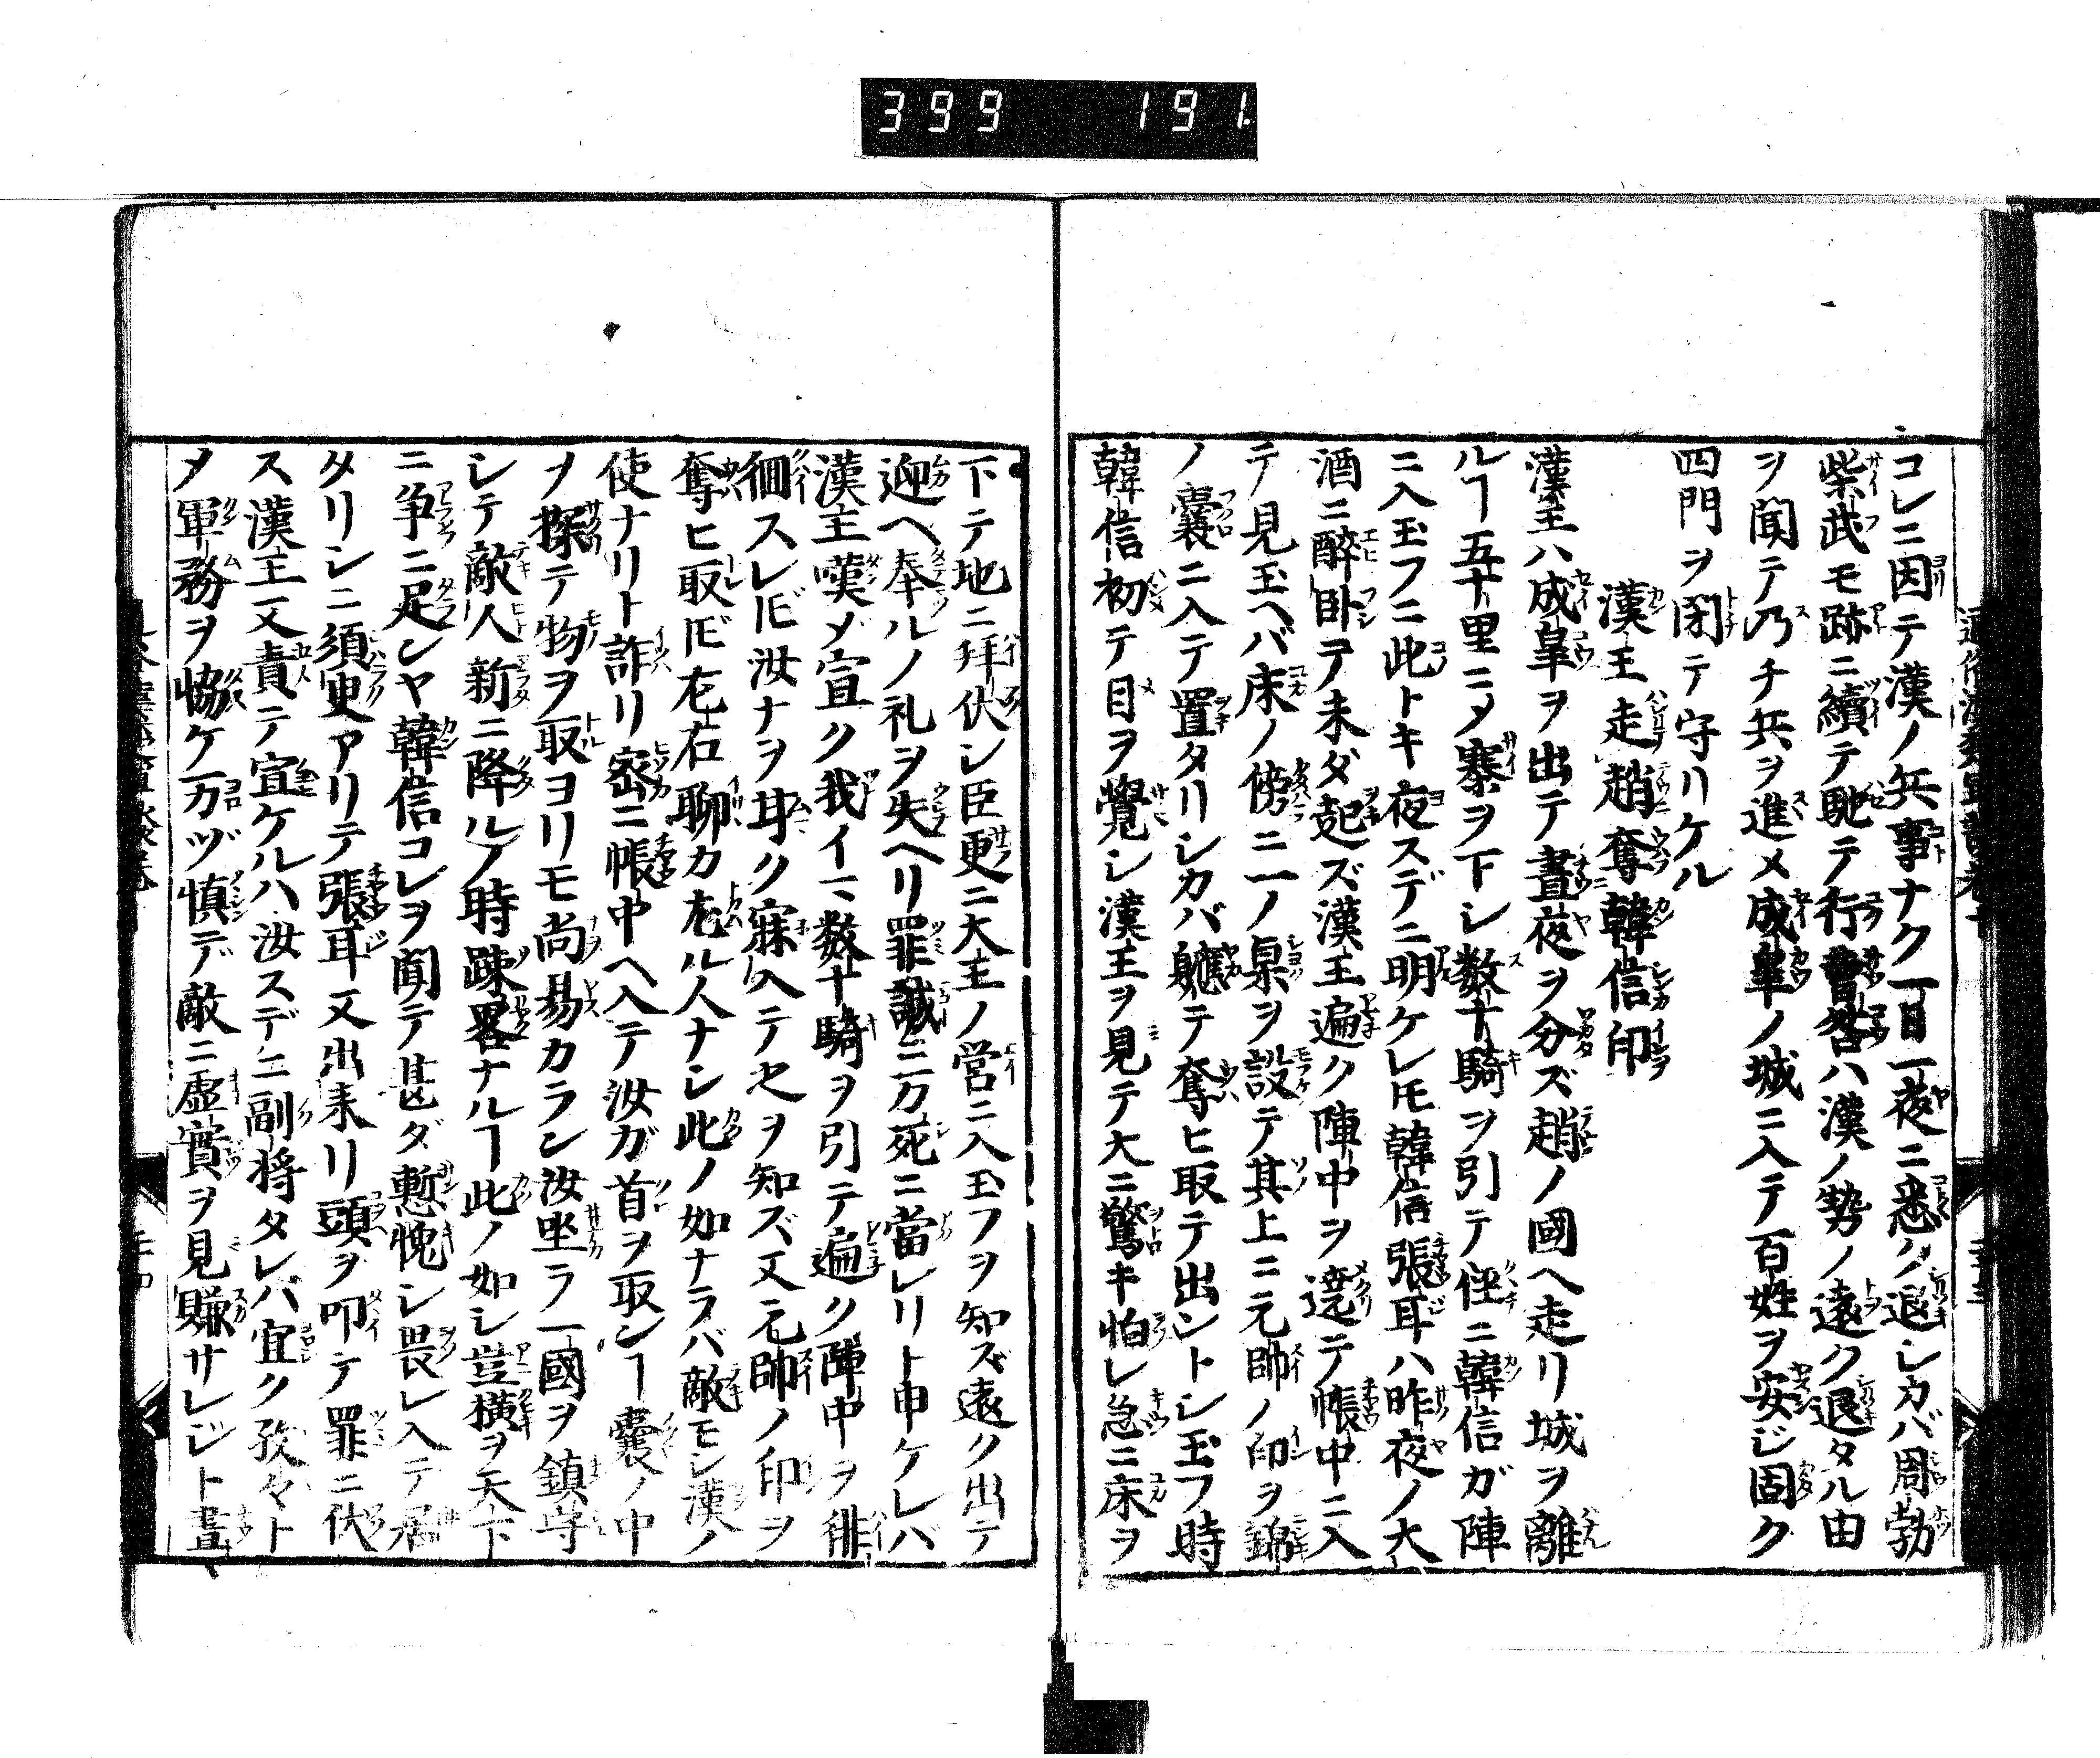 399 191
コレニ因テ漢ノ兵事ナク一日一夜ニ悉ク退シカバ周勃
柴武モ跡ニ續テ馳テ行曹咎ハ漢ノ勢ノ遠ク退タル由
ヲ聞テ乃チ兵ヲ進メ成皐ノ城ニ入テ百姓ヲ安ジ固ク
四門ヲ閉テ守リケル
漢王走趙奪韓信印
漢王ハ成皐ヲ出テ晝夜ヲ分ズ趙ノ國ヘ走リ城ヲ離
ルヿ五十里ニメ寨ヲ下シ数十騎ヲ引テ徃ニ韓信ガ陣
ニ入玉フニ此トキ夜スデニ明ケレ𪜈韓信張耳ハ昨夜ノ大
酒ニ醉卧テ未ダ起ズ漢王遍ク陣中ヲ遶テ帳中ニ入
テ見玉ヘバ床ノ傍ニ一ノ梟ヲ設テ其上ニ元帥ノ印ヲ錦
ノ囊ニ入テ置タリシカバ軈テ奪ヒ取テ出ントシ玉フ時
韓信初テ目ヲ覺シ漢王ヲ見テ大ニ驚キ怕レ急ニ床ヲ
下テ地ニ拜伏シ臣更ニ大王ノ営ニ入玉フヲ知ズ遠ク出テ
迎ヘ奉ルノ礼ヲ失ヘリ罪誠ニ万死ニ當レリト申ケレバ
漢王嘆メ宣ク我イマ数十騎ヲ引テ遍ク陣中ヲ徘
徊スレ𪜈汝ナヲ耳ク寐入テセヲ知ズ又元帥ノ印ヲ
奪ヒ取𪜈左右聊カ尤ル人ナシ此ノ如ナラバ敵モシ漢ノ
使ナリト詐リ密ニ帳中ヘ入テ汝ガ首ヲ取ンヿ囊ノ中
ヲ探テ物ヲ取ヨリモ尚易カラン汝坐ラ一國ヲ鎮守
シテ敵人新ニ降ルノ時踈畧ナルヿ此ノ如シ豈横ヲ天下
ニ争ニ足ンヤ韓信コレヲ聞テ甚ダ慙愧シ畏レ入テ居
タリシニ須臾アリテ張耳又出来リ頭ヲ叩テ罪ニ伏
ス漢王又責テ宣ケルハ汝スデニ副将タレバ宜ク孜々ト
ヲ軍務ヲ恊ケ万ヅ慎デ敵ニ虚實ヲ見賺サレジト晝